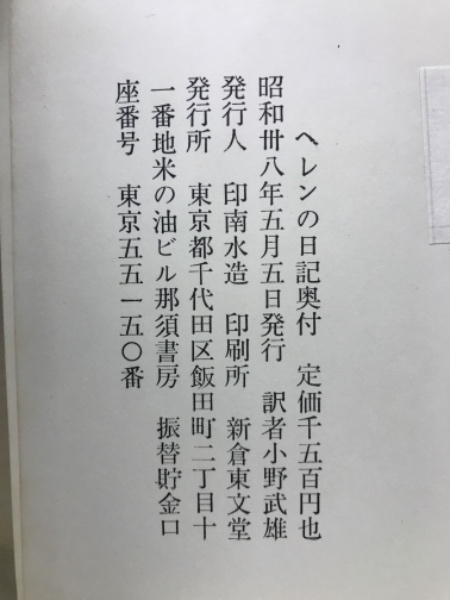 ヘレンの日記奥付　定価千五百円也
昭和卅八年五月五日発行　訳者小野武雄
発行人　印南水造　印刷所　新倉東文堂
発行所　東京都千代田区飯田町二丁目十
一番地米の油ビル那須書房　振替貯金口
座番号　東京五五一五〇番